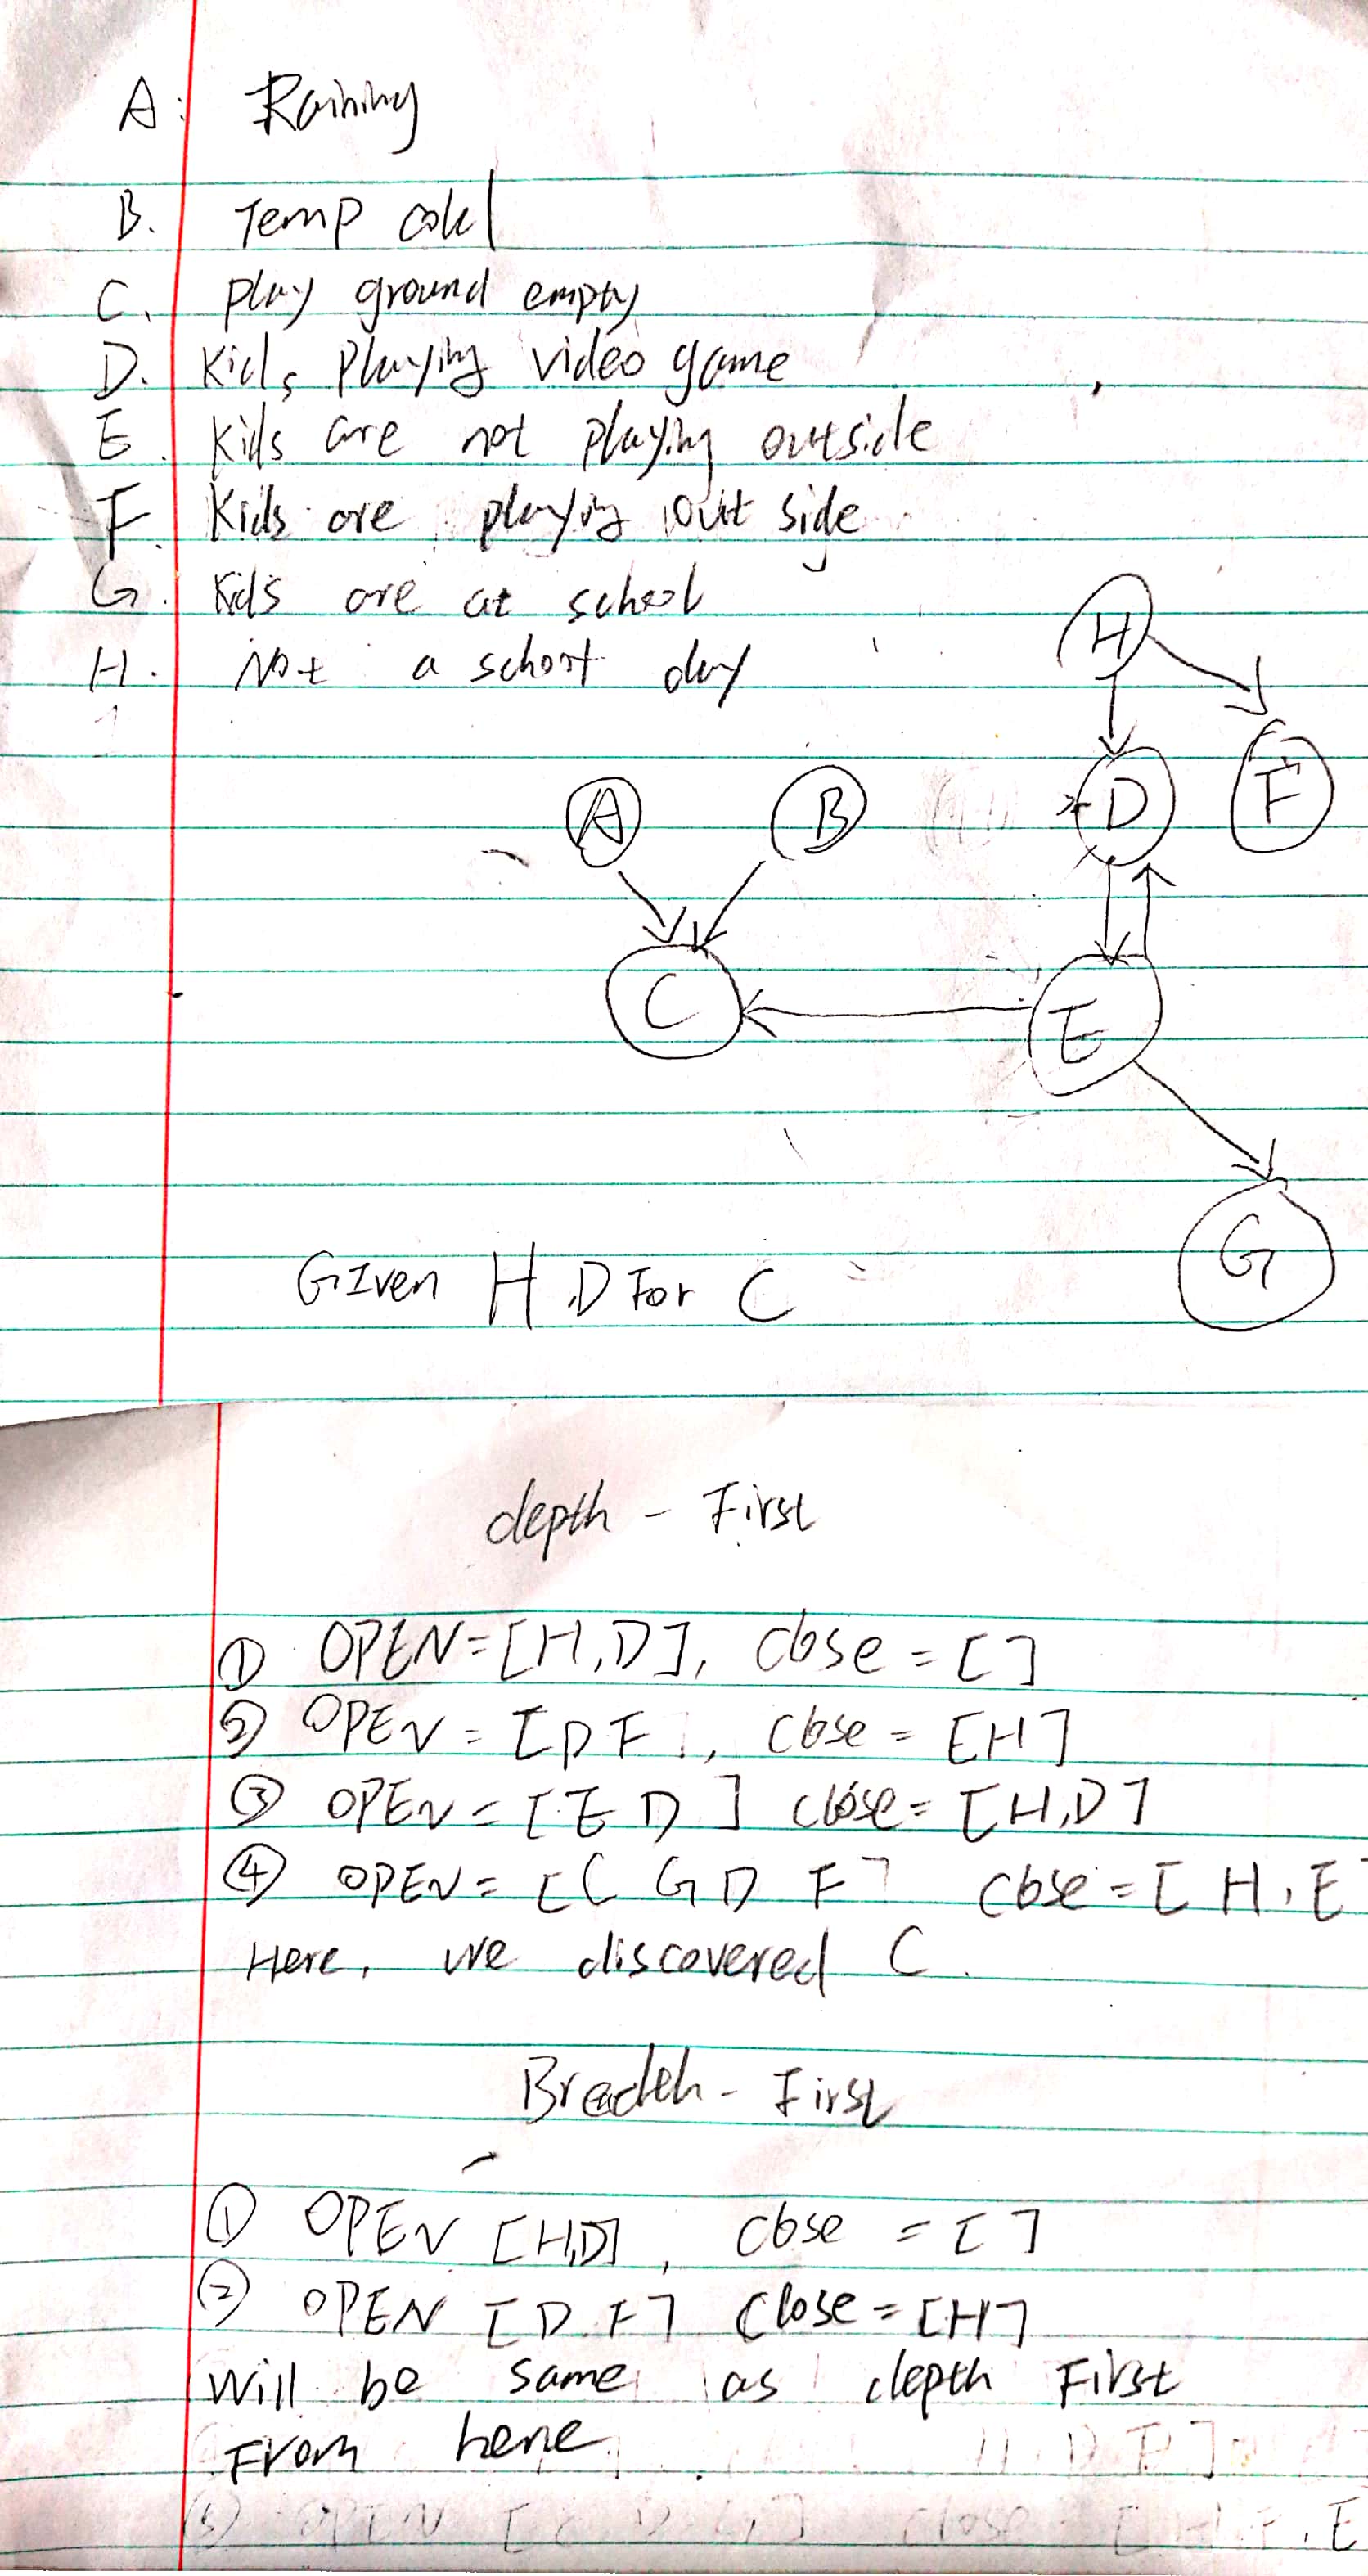 A: Raining
B. Temp cold
C. play ground empty
D. Kids playing video game
E. Kids are not playing outside
F. Kids are playing out side
G. Kids are at school
H. Not a school day
H
A B D F
C E
G
GIven H,D For C
depth - First
① OPEN=[H,D], Close = []
② OPEN = [D F], Close = [H]
③ OPEN = [E D] Close = [H,D]
④ OPEN = [C G D F] Close = [H, E
Here, we discovered C.
Breadth - First
① OPEN [H,D], Close = []
② OPEN [D.F] Close = [H]
Will be same as depth First
From here
H D F ]
(3) OPEN [ ] Close [ H, F, E